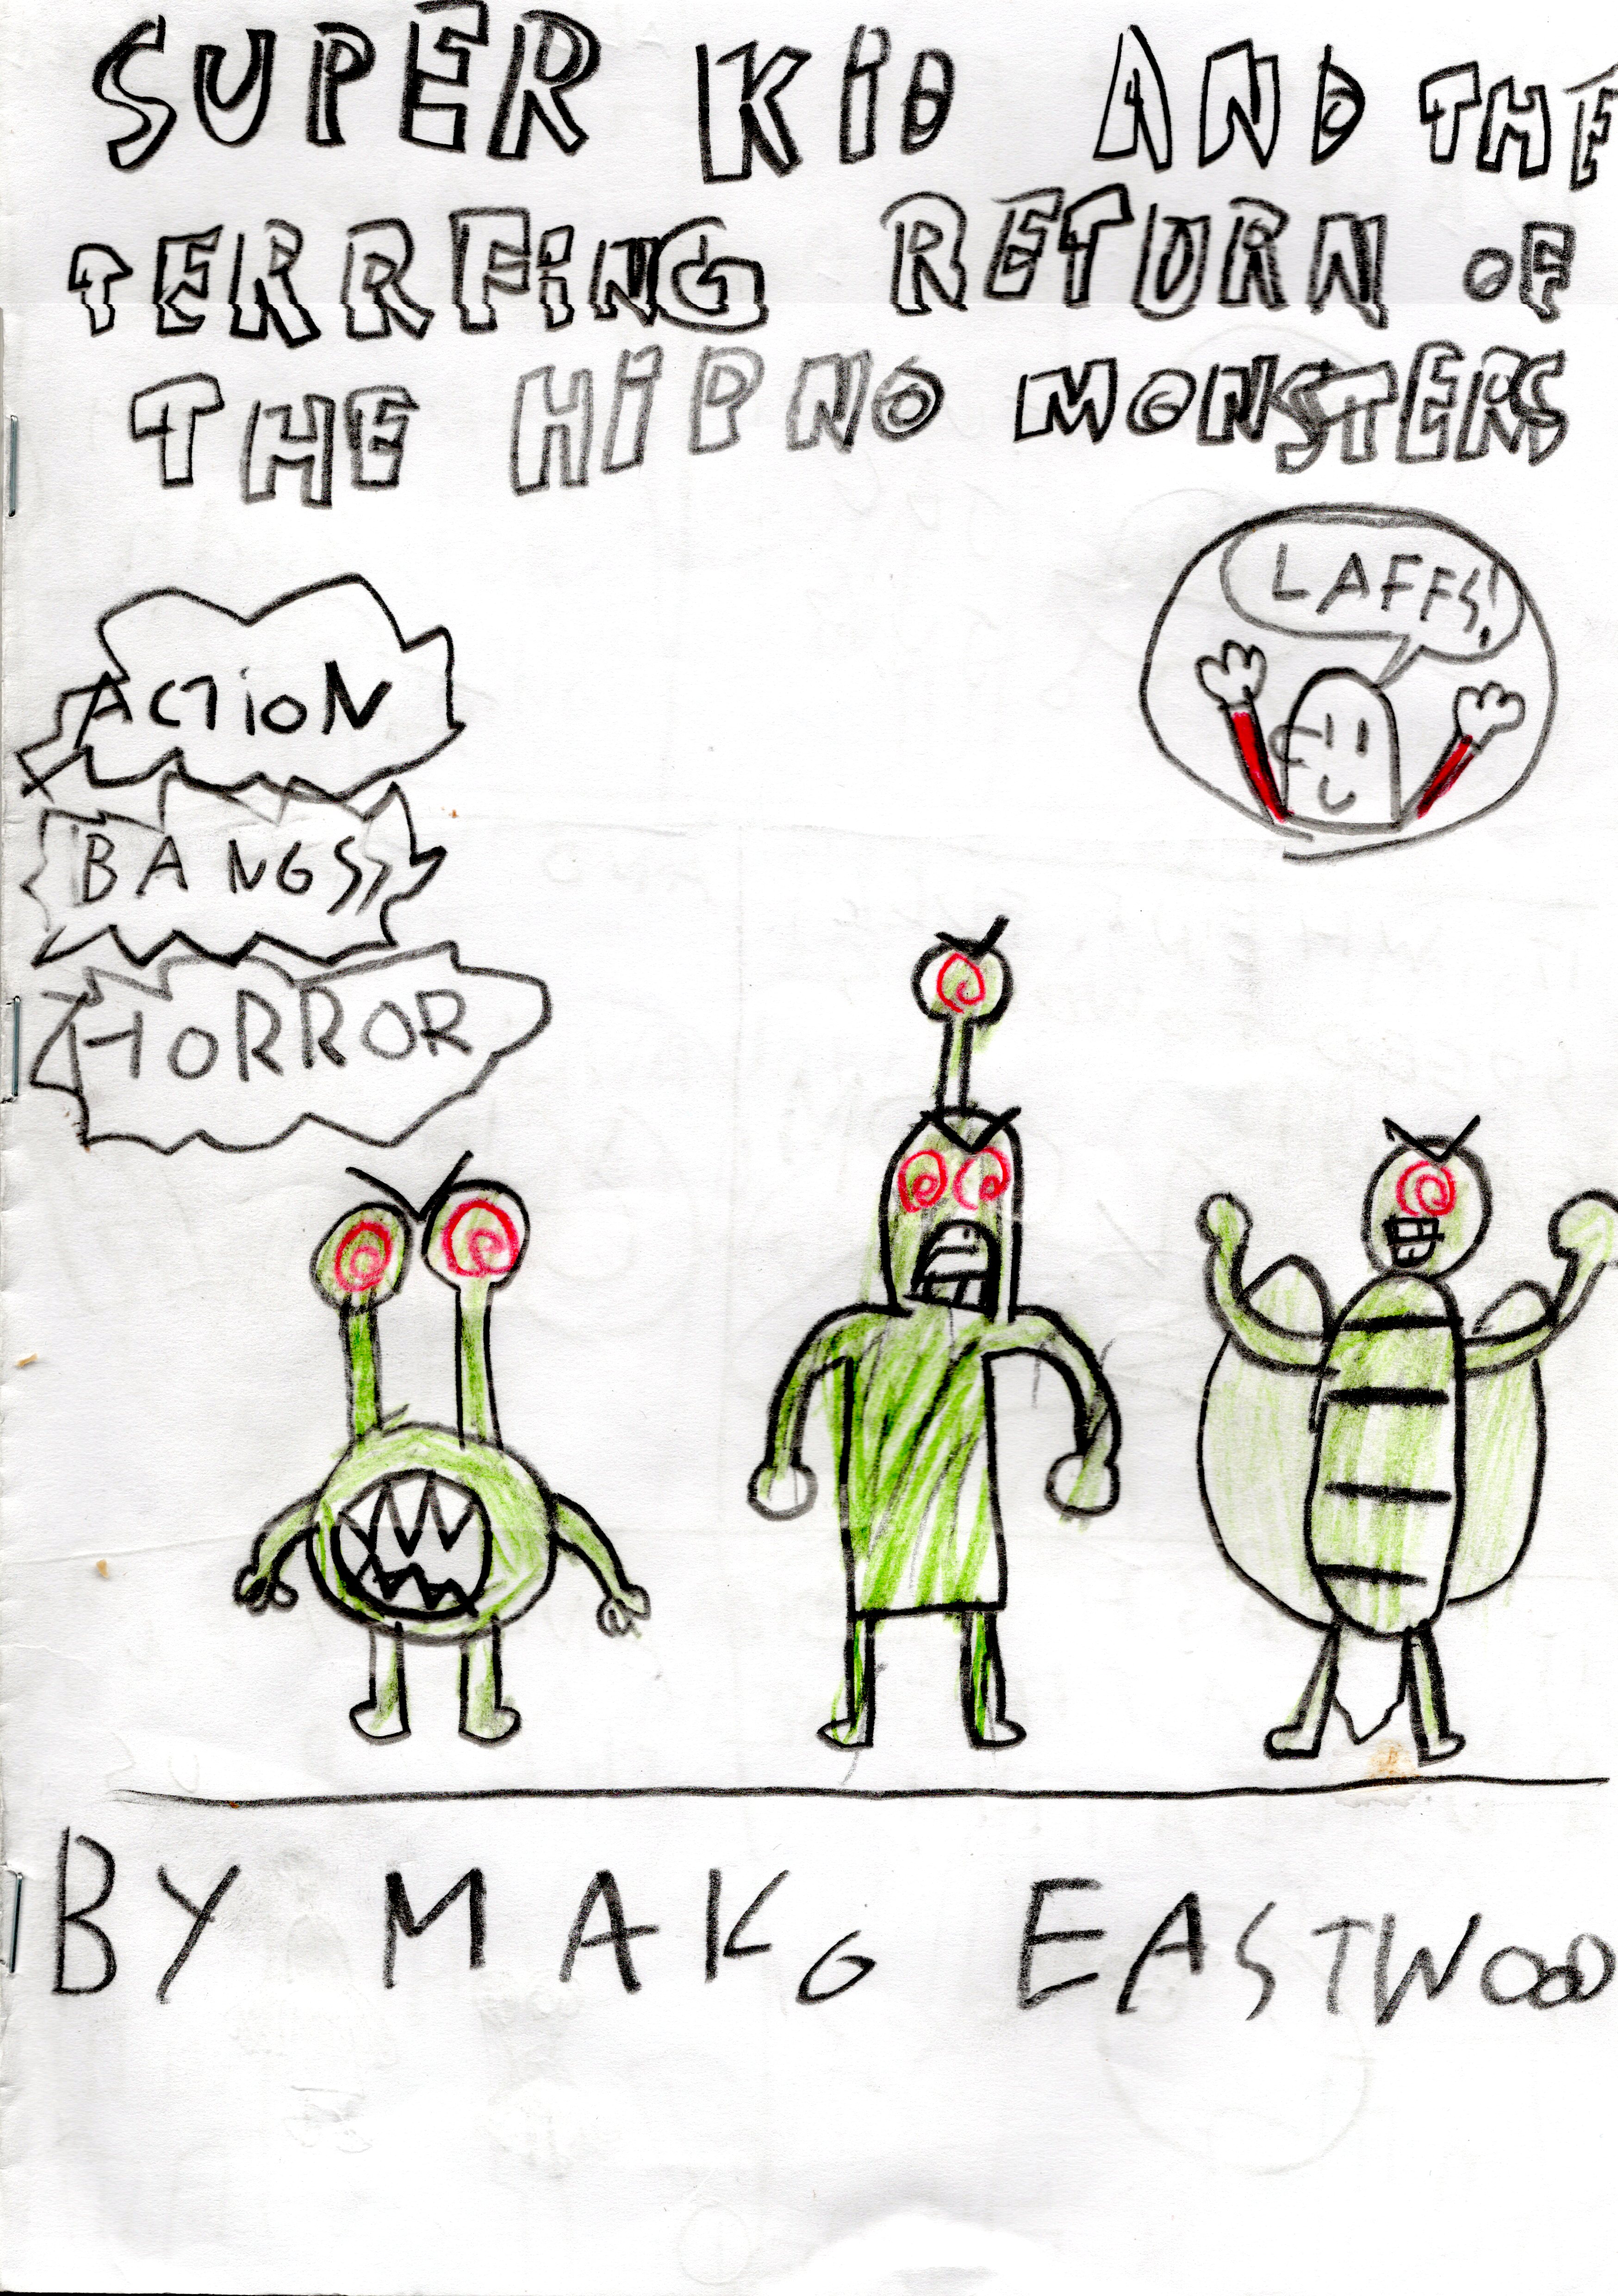 SUPER KiD AND THE
TERRFiNG RETURN OF
THE HiPNO MONSTERS
LAFFS!
ACTiON
BANGS
HORROR
BY MAKO EASTWOOD